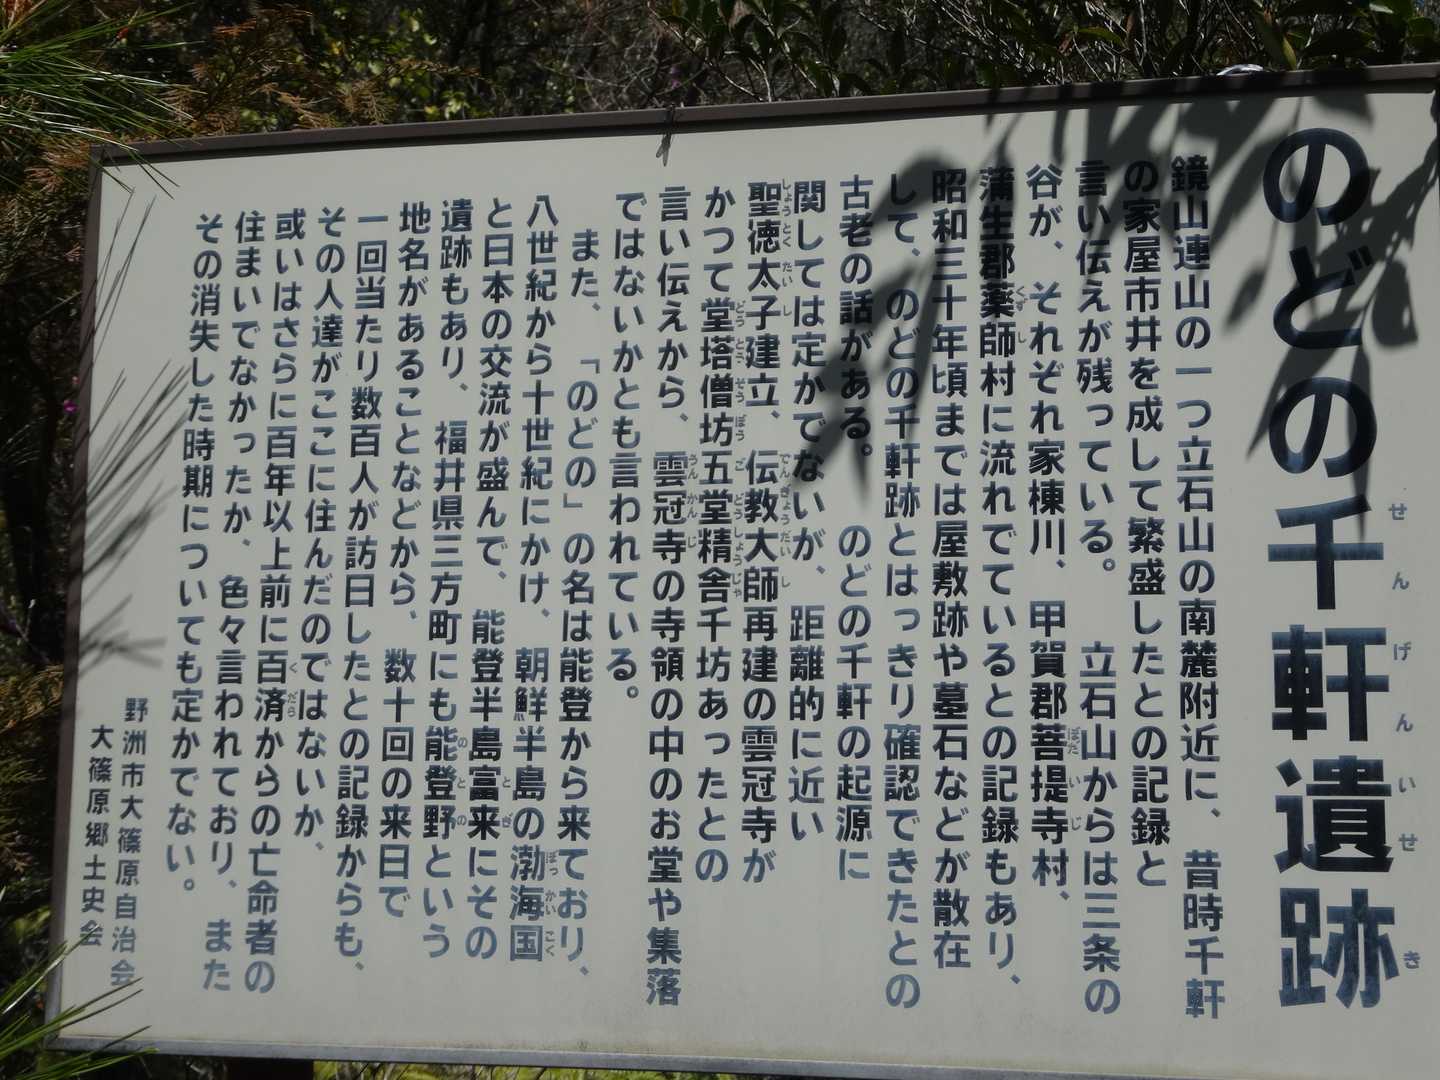 のどの千軒遺跡
せんげんいせき
鏡山連山の一つ立石山の南麓附近に、昔時千軒
の家屋市井を成して繁盛したとの記録と
言い伝えが残っている。　立石山からは三条の
谷が、それぞれ家棟川、甲賀郡菩提寺村、
蒲生郡薬師村に流れでているとの記録もあり、
昭和三十年頃までは屋敷跡や墓石などが散在
して、のどの千軒跡とはっきり確認できたとの
古老の話がある。　のどの千軒の起源に
関しては定かでないが、距離的に近い
聖徳太子建立、伝教大師再建の雲冠寺が
かつて堂塔僧坊五堂精舎千坊あったとの
言い伝えから、雲冠寺の寺領の中のお堂や集落
ではないかとも言われている。
また、「のどの」の名は能登から来ており、
八世紀から十世紀にかけ、朝鮮半島の渤海国
と日本の交流が盛んで、能登半島富来にその
遺跡もあり、福井県三方町にも能登野という
地名があることなどから、数十回の来日で
一回当たり数百人が訪日したとの記録からも、
その人達がここに住んだのではないか、
或いはさらに百年以上前に百済からの亡命者の
住まいでなかったか、色々言われており、また
その消失した時期についても定かでない。
野洲市大篠原自治会
大篠原郷土史会